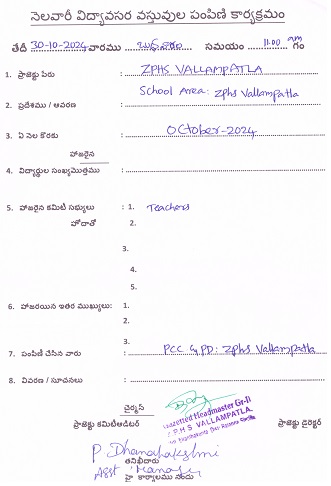 నెలవారీ విద్యావసర వస్తువుల పంపిణి కార్యక్రమం
తేదీ 30-10-2024 వారము బుధవారం సమయం 11.00 am గం
1. ప్రాజెక్టు పేరు : ZPHS VALLAMPATLA
School Area: Zphs Vallampatla
2. ప్రదేశము / ఆవరణ :
3. ఏ నెల కొరకు : OCtober-2024
హాజరైన
4. విద్యార్థుల సంఖ్యమొత్తము :
5. హాజరైన కమిటి సభ్యులు : 1. Teachers
హోదాతో 2.
3.
4.
5.
6. హాజరయిన ఇతర ముఖ్యులు: 1.
2.
3.
7. పంపిణి చేసిన వారు : PCC & PD: Zphs Vallampatla
8. వివరణ / సూచనలు :
చైర్మన్
Gazetted Headmaster Gr-II
Z P H S VALLAMPATLA,
ప్రాజెక్టు కమిటీఆడిటర్ ప్రాజెక్టు డైరెక్టర్
P Dhanalakshmi
తనిఖీదారు
Asst Manager
హై కార్యాలము నందు